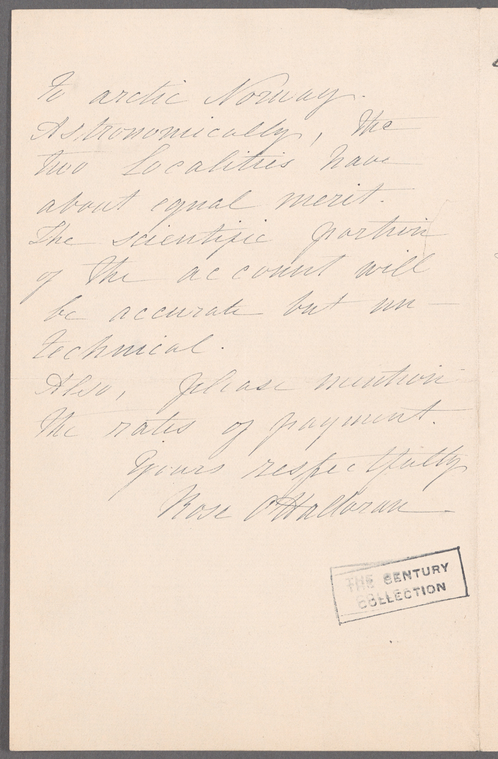 to arctic Norway.
Astronomically, the
two Localities have
about equal merit.
The scientific portion
of the account will
be accurate but un-
technical.
Also, please mention
the rates of payment.
Yours respectfully
Rose O'Halloran
THE CENTURY
COLLECTION